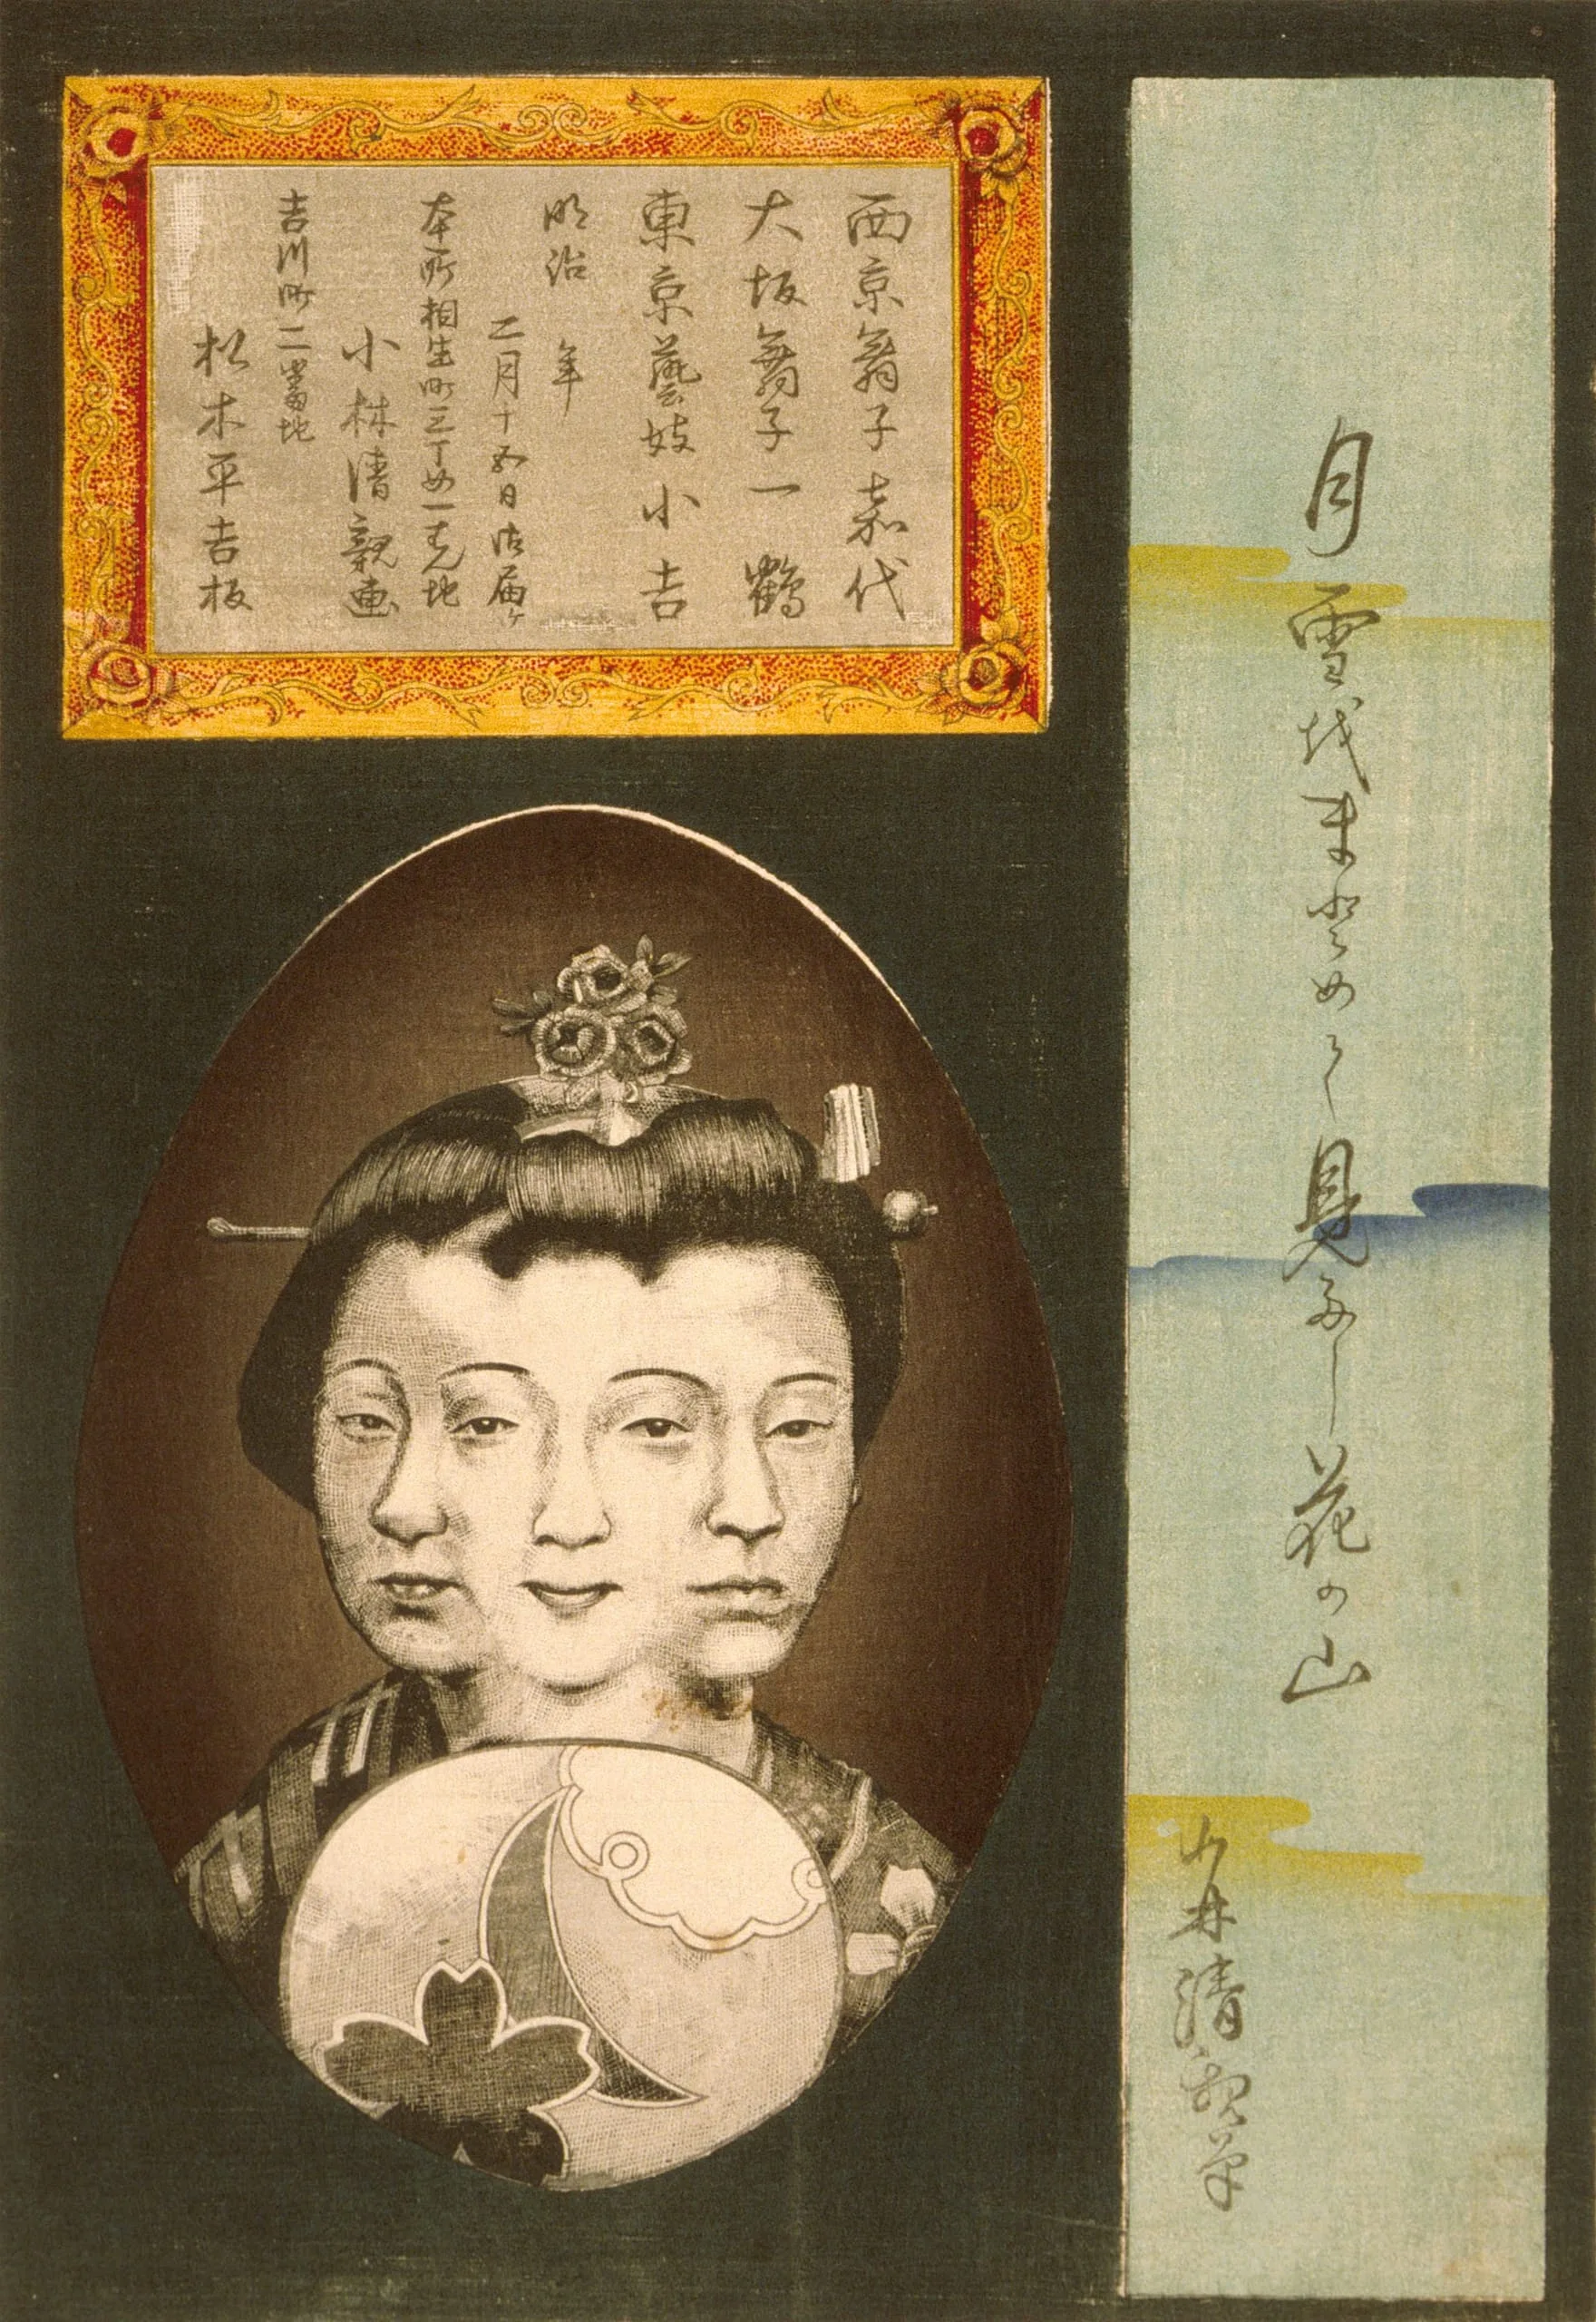 月雪越まとめて見多し花の山
小林清親筆
西京舞子嘉代
大坂舞子一鶴
東京藝妓小吉
明治 年
二月十五日御届ケ
本所相生町三丁目一番地
小林清親画
吉川町二番地
松木平吉板